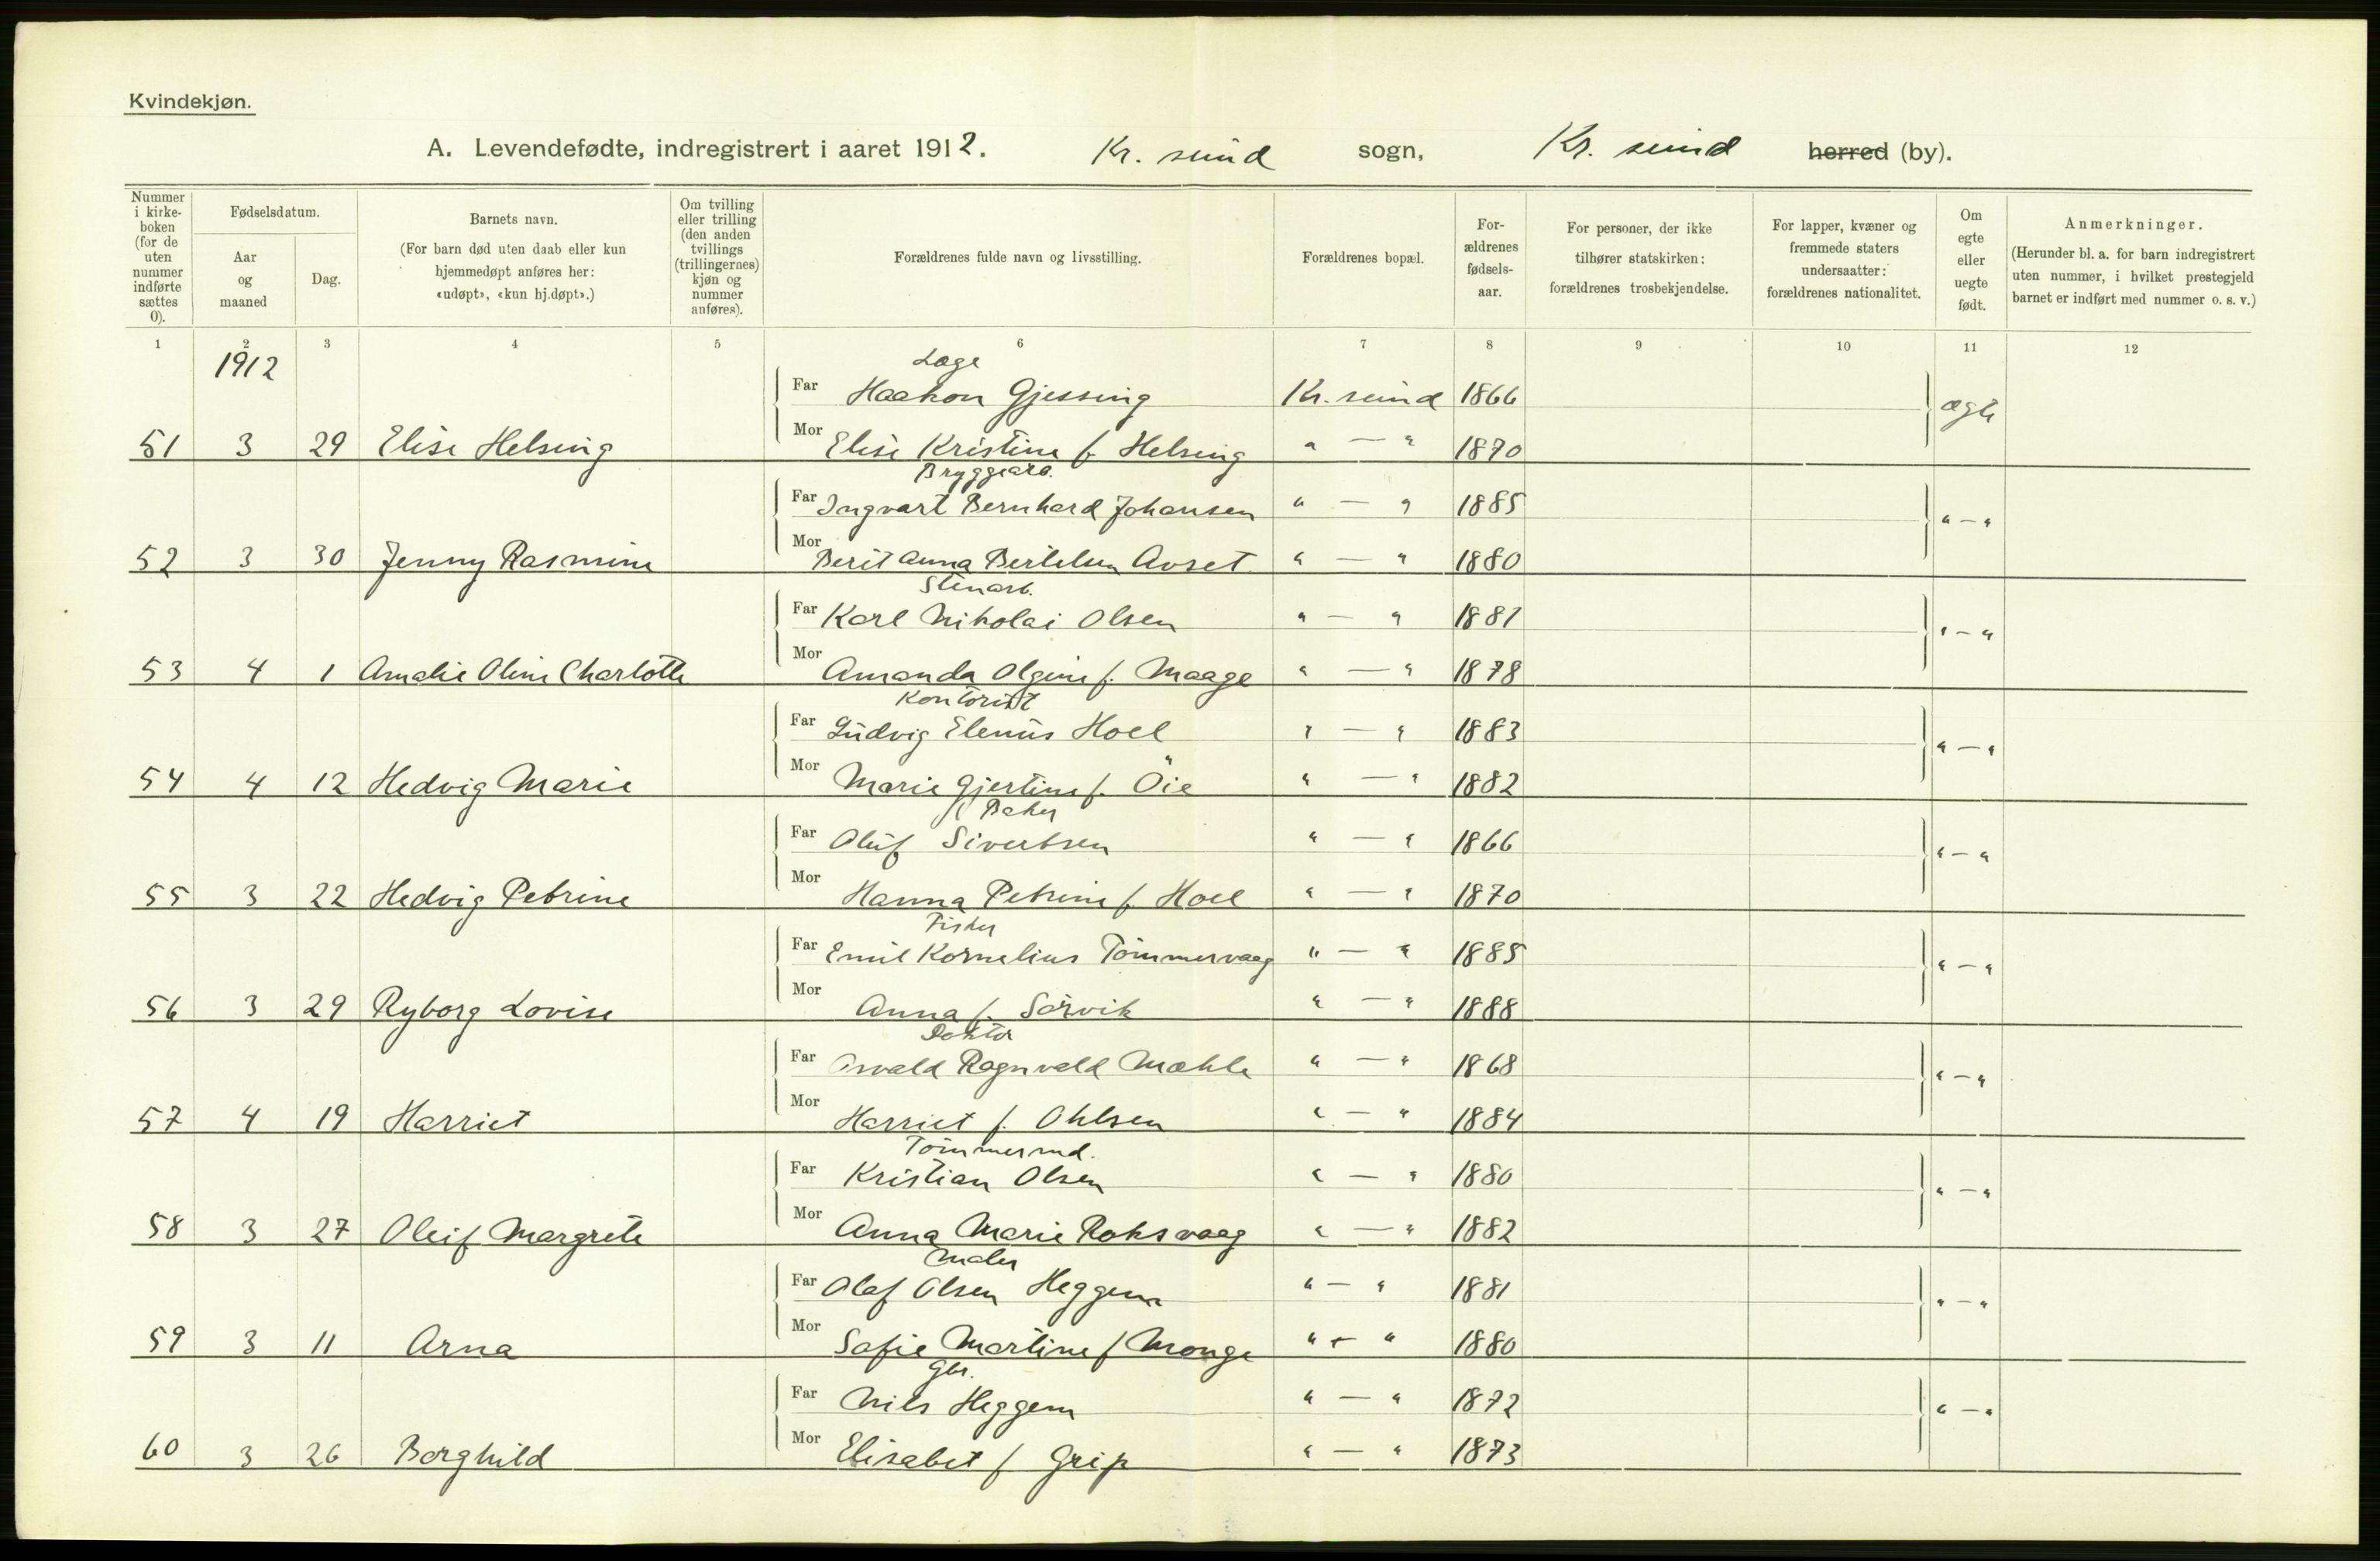 Kvindekjøn.
A. Levendefødte, indregistrert i aaret 1912. Kr. sund sogn, Kr. sund herred (by).
Nummer i kirkeboken (for de uten nummer indførte sættes 0).
Fødselsdatum.
Aar og maaned
Dag.
Barnets navn.
(For barn død uten daab eller kun hjemmedøpt anføres her: «udøpt», «kun hj.døpt».)
Om tvilling eller trilling (den anden tvillings (trillingernes) kjøn og nummer anføres).
Forældrenes fulde navn og livsstilling.
Forældrenes bopæl.
Forældrenes fødselsaar.
For personer, der ikke tilhører statskirken: forældrenes trosbekjendelse.
For lapper, kvæner og fremmede staters undersaatter: forældrenes nationalitet.
Om egte eller uegte født.
Anmerkninger.
(Herunder bl. a. for barn indregistrert uten nummer, i hvilket prestegjeld barnet er indført med nummer o. s. v.)
1 2 3 4 5 6 7 8 9 10 11 12
1912
Læge
Far Haakon Gjessing Kr. sund 1866 ægte
51 3 29 Elise Helsing Mor Elise Kristine f. Helsing " — " 1870
Bryggearb.
Far Ingvart Bernhard Johansen " — " 1885 " — "
52 3 30 Jenny Rasmine Mor Berit Anna Bertelsen Avset " — " 1880
Stenarb.
Far Karl Nikolai Olsen " — " 1881 " — "
53 4 1 Amalie Oline Charlotte Mor Amanda Olgine f. Maage " — " 1878
Kontorist
Far Ludvig Elenius Hoel " — " 1883 " — "
54 4 12 Hedvig Marie Mor Marie Gjertine f. Öie " — " 1882
Baker
Far Oluf Sivertsen " — " 1866 " — "
55 3 22 Hedvig Petrine Mor Hanna Petrine f. Hoel " — " 1870
Fisker
Far Emil Kornelius Tömmervaag " — " 1885 " — "
56 3 29 Ryborg Lovise Mor Anna f. Sörvik " — " 1888
Doktor
Far Osvald Ragnvald Mæhle " — " 1868 " — "
57 4 19 Harriet Mor Harriet f. Ohlsen " — " 1884
Tömmermd.
Far Kristian Olsen " — " 1880 " — "
58 3 27 Oleif Margrete Mor Anna Marie Roksvaag " — " 1882
Maler
Far Olaf Olsen Heggem " — " 1881 " — "
59 3 11 Arna Mor Sofie Martine f Monge " — " 1880
Gbr.
Far Nils Heggem " — " 1872 " — "
60 3 26 Borghild Mor Elisabet f Grip " — " 1873